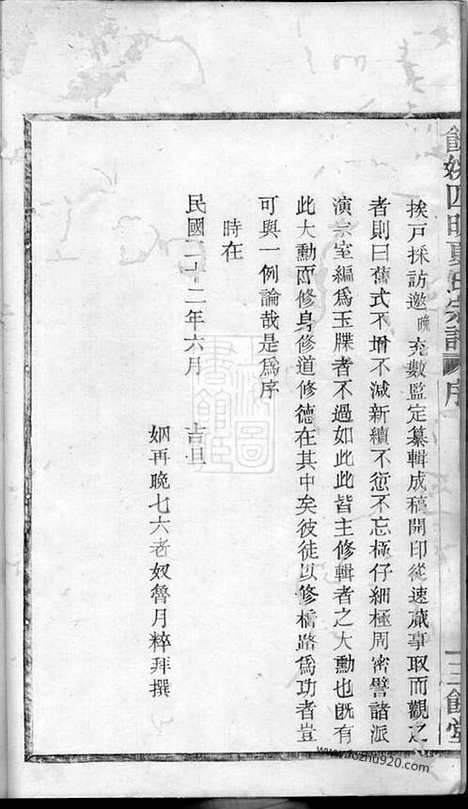 四明夏氏宗譜 序
三餘堂
挨戸採訪邀晩充數監定纂輯成稿開印從速蕆事取而觀之
者則曰舊式不增不減新續不愆不忘極仔細極周密譬諸派
演宗室編爲玉牒者不過如此此皆主修輯者之大勳也旣有
此大勳而修身修道修德在其中矣彼徒以修橋路爲功者豈
可與一例論哉是爲序
時在
民國二十二年六月 吉旦
姻再晩七六老奴魯月粹拜撰
www.fozhu920.com